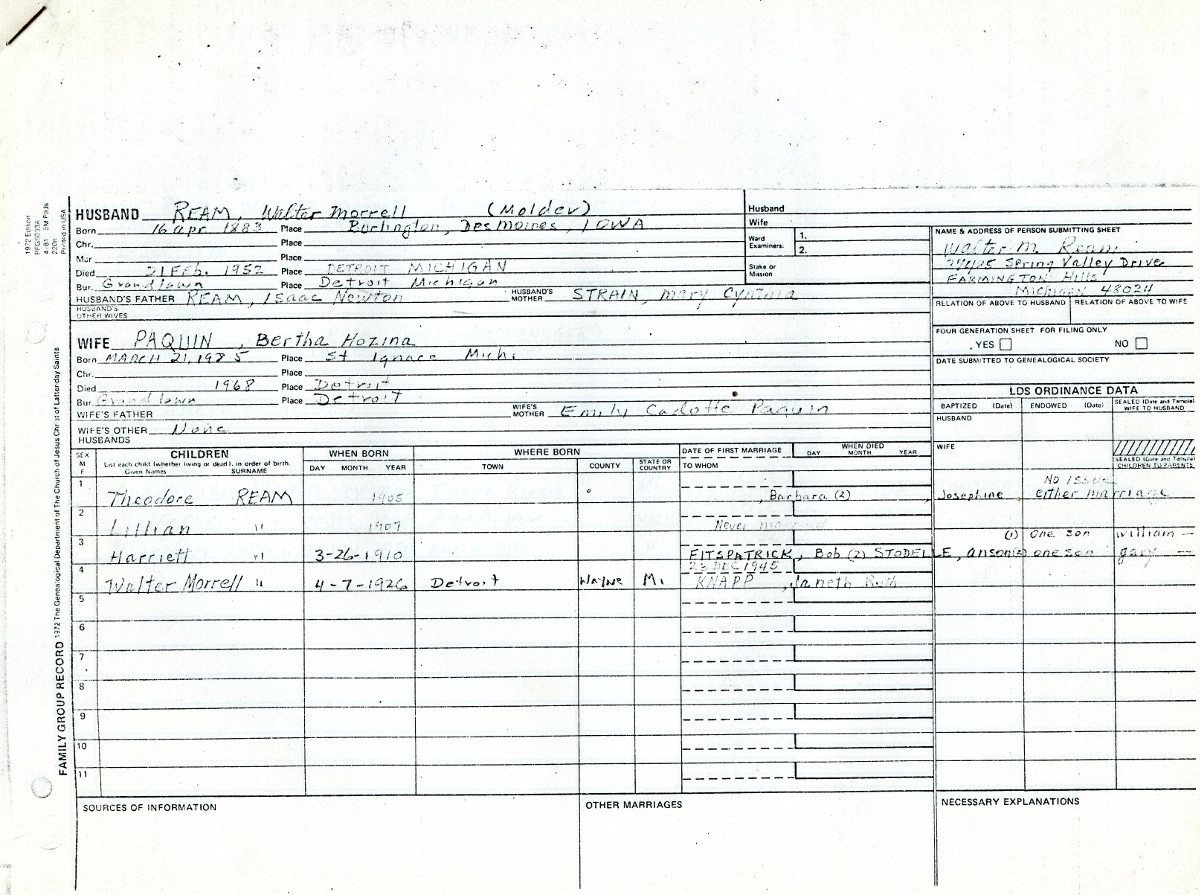 1972 Edition
PFGS0033A
4/81 5M Pads
220n
Printed in USA
FAMILY GROUP RECORD 1972 The Genealogical Department of The Church of Jesus Christ of Latter-day Saints
HUSBAND REAM, Walter Morrell (Molder)
Born 16 apr 1883 Place Burlington, Des Moines, IOWA
Chr. Place
Mar Place
Died 21 Feb. 1952 Place DETROIT MICHIGAN
Bur. Grandlawn Place Detroit Michigan
HUSBAND'S FATHER REAM, Isaac Newton HUSBAND'S MOTHER STRAIN, Mary Cynthia
HUSBAND'S OTHER WIVES
Husband
Wife
Ward Examiners: 1.
2.
Stake or Mission
NAME & ADDRESS OF PERSON SUBMITTING SHEET
Walter M. Ream
Spring Valley Drive
FARMINGTON Hills
Michigan 48024
RELATION OF ABOVE TO HUSBAND RELATION OF ABOVE TO WIFE
FOUR GENERATION SHEET FOR FILING ONLY
YES NO
DATE SUBMITTED TO GENEALOGICAL SOCIETY
WIFE PAQUIN, Bertha Hozina
Born MARCH 21, 1985 Place St Ignace Mich.
Chr. Place
Died 1968 Place Detroit
Bur. Grandlawn Place Detroit
WIFE'S FATHER WIFE'S MOTHER Emily Cadotte Paquin
WIFE'S OTHER HUSBANDS None
LDS ORDINANCE DATA
BAPTIZED (Date) ENDOWED (Date) SEALED (Date and Temple) WIFE TO HUSBAND
HUSBAND
WIFE
SEALED (Date and Temple) CHILDREN TO PARENTS
SEX M F CHILDREN WHEN BORN WHERE BORN DATE OF FIRST MARRIAGE WHEN DIED
List each child (whether living or dead), in order of birth. Given Names SURNAME DAY MONTH YEAR TOWN COUNTY STATE OR COUNTRY TO WHOM DAY MONTH YEAR
1 Theodore REAM 1905 , Barbara (2) , Josephine No Issue either marriage
2 Lillian " 1907 Never married
3 Harriett " 3-26-1910 FITSPATRICK, Bob (2) STODELLE, anson (1) One son William — (2) one son gary —
4 Walter Morrell " 4-7-1926 Detroit Wayne Mi. 23 DEC 1945 KNAPP, Janeth Ruth
5
6
7
8
9
10
11
SOURCES OF INFORMATION OTHER MARRIAGES NECESSARY EXPLANATIONS